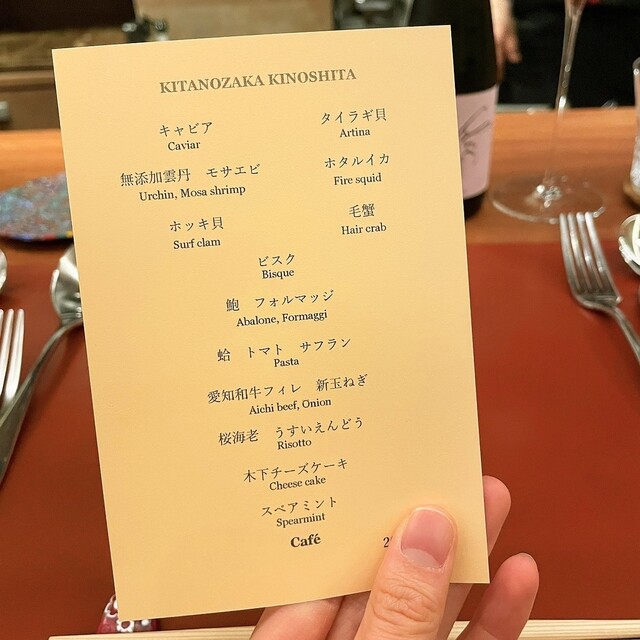 KITANOZAKA KINOSHITA
キャビア
Caviar
タイラギ貝
Artina
無添加雲丹　モサエビ
Urchin, Mosa shrimp
ホタルイカ
Fire squid
ホッキ貝
Surf clam
毛蟹
Hair crab
ビスク
Bisque
鮑　フォルマッジ
Abalone, Formaggi
蛤　トマト　サフラン
Pasta
愛知和牛フィレ　新玉ねぎ
Aichi beef, Onion
桜海老　うすいえんどう
Risotto
木下チーズケーキ
Cheese cake
スペアミント
Spearmint
Café